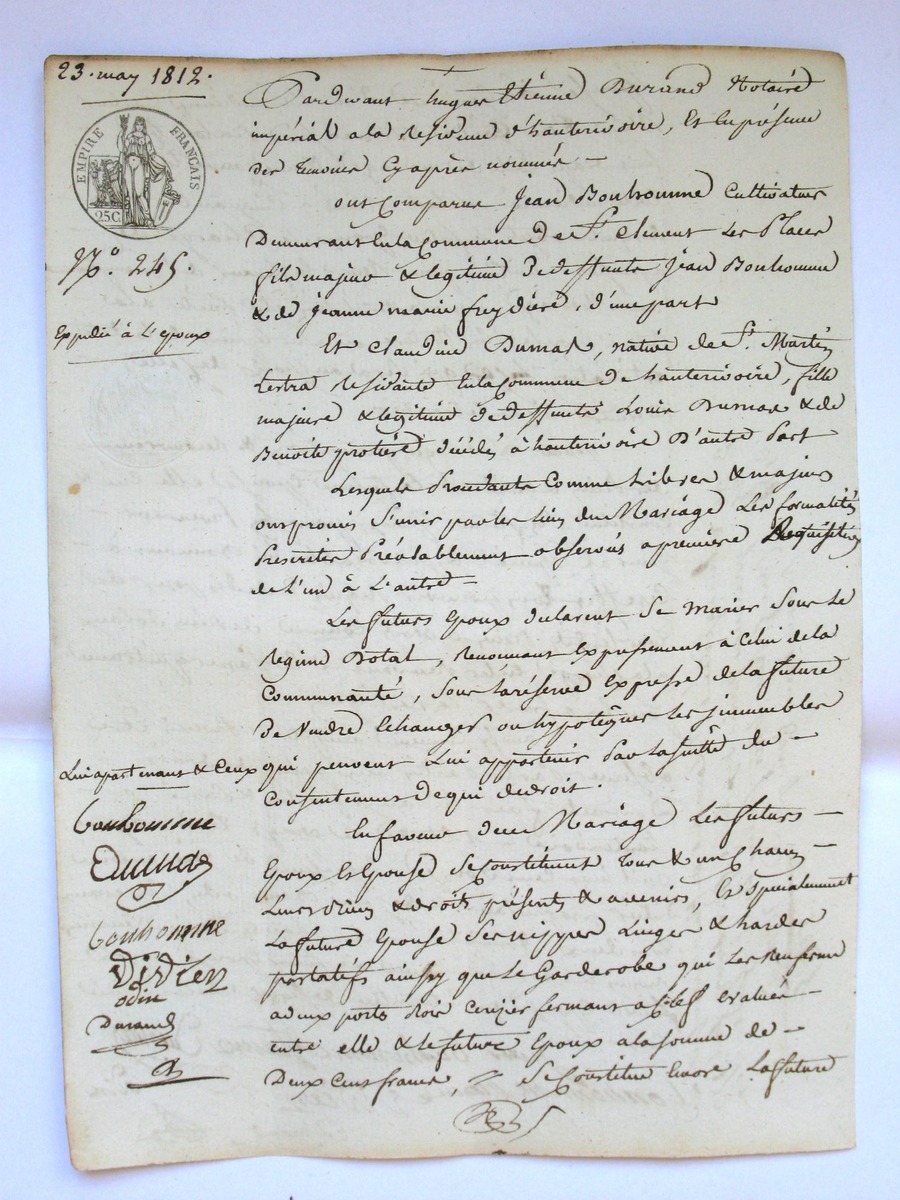 23. may 1812.
EMPIRE FRANÇAIS
25C
N.º 245.
Expedié à L'epoux
Pardevant hugues Etienne Durand Notaire
impérial a la residence d'hauterivoire, Et En présence
des temoins Cyaprès nommés —
ont Comparus Jean Bonhomme Cultivateur
Demeurant En la Commune De St. Clement Les Places
fils majeur & legitime De deffunts Jean Bonhomme
& de jeanne marie freydiere, d'une part
Et Claudine Dumas, native de St. Martin
Lestra residante En la Commune De hauterivoire, fille
majeure & legitime de deffunts Louis Dumas & de
Benoite protiere décédés à hauterivoire D'autre Part
Lesquels Procedants Comme Libres & majeurs
ont promis S'unir par les Liens du Mariage Les formalités
Prescrites Préalablement observées a premiere Requisition
de L'un à L'autre —
Les futurs Epoux declarent Se Marier Sous Le
Regime Dotal, Renonçant Expressement à Celui de la
Communauté, Sous La réserve Expresse de la future
De Vendre Echanger ou hypotéquer Les immeubles
Lui apartenant & Ceux qui peuvent Lui appartenir Par La suitte du —
Consentement De qui de droit.
En faveur du Mariage Les futurs —
Epoux Et Epouse Se Constituent tous & un Chacun —
Leurs Biens & droits présents & avenirs, Et specialement
La future Epouse Ses nippes Linges & hardes
portatifs ainsy que Le Garderobe qui Les Renferme
a deux portes Bois Cerizier fermant a Clef Evalués —
entre elle & le futur Epoux a la Somme de —
Deux Cent francs, Se Constitue Encore La future
bonhomme
Dumas
bonhomme
Vivien
odin
Durand